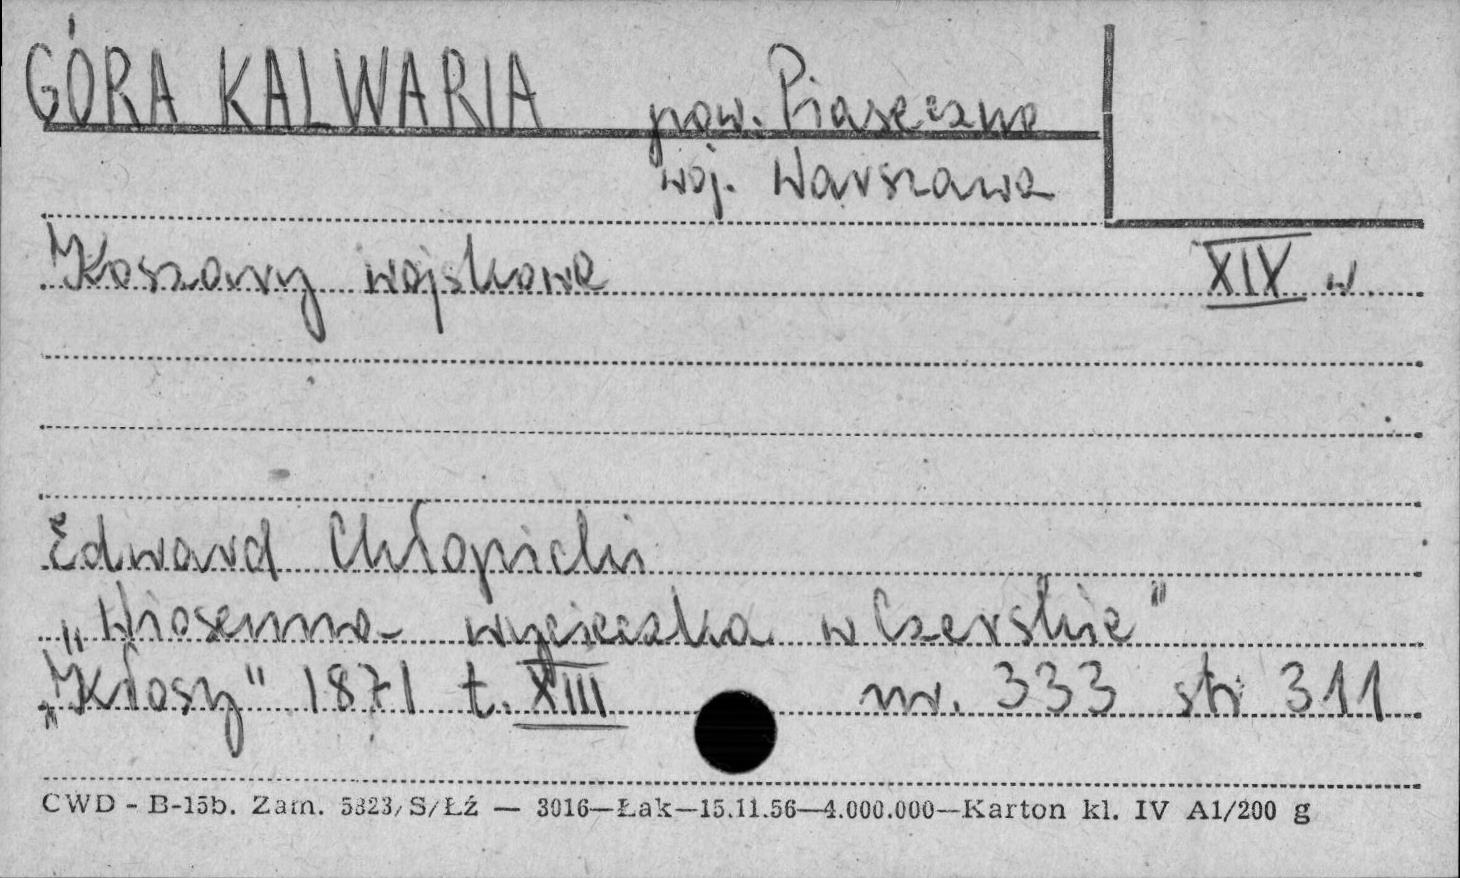 GÓRA KALWARIA pow. Piaseczno
woj. Warszawa
Koszary wojskowe XIX w.
Edward Chłopicki
„Wiosenna wycieczka w Czerskie"
„Kłosy" 1871 t. XIII nr. 333 str 311
CWD - B-15b. Zam. 5823/S/Łź — 3016—Łak—15.11.56—4.000.000—Karton kl. IV A1/200 g